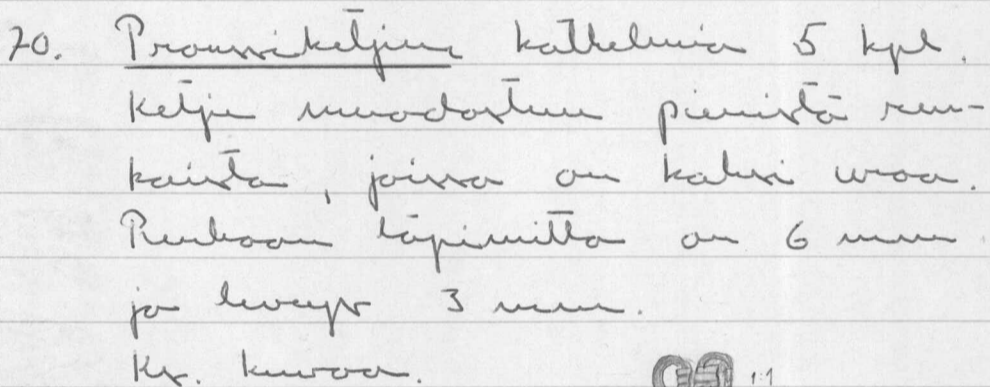 70. Pronssiketjun katkelmia 5 kpl.
Ketju muodostuu pienistä ren-
kaista, joissa on kaksi uraa.
Renkaan läpimitta on 6 mm
ja leveys 3 mm.
Ks. kuvaa. 1:1